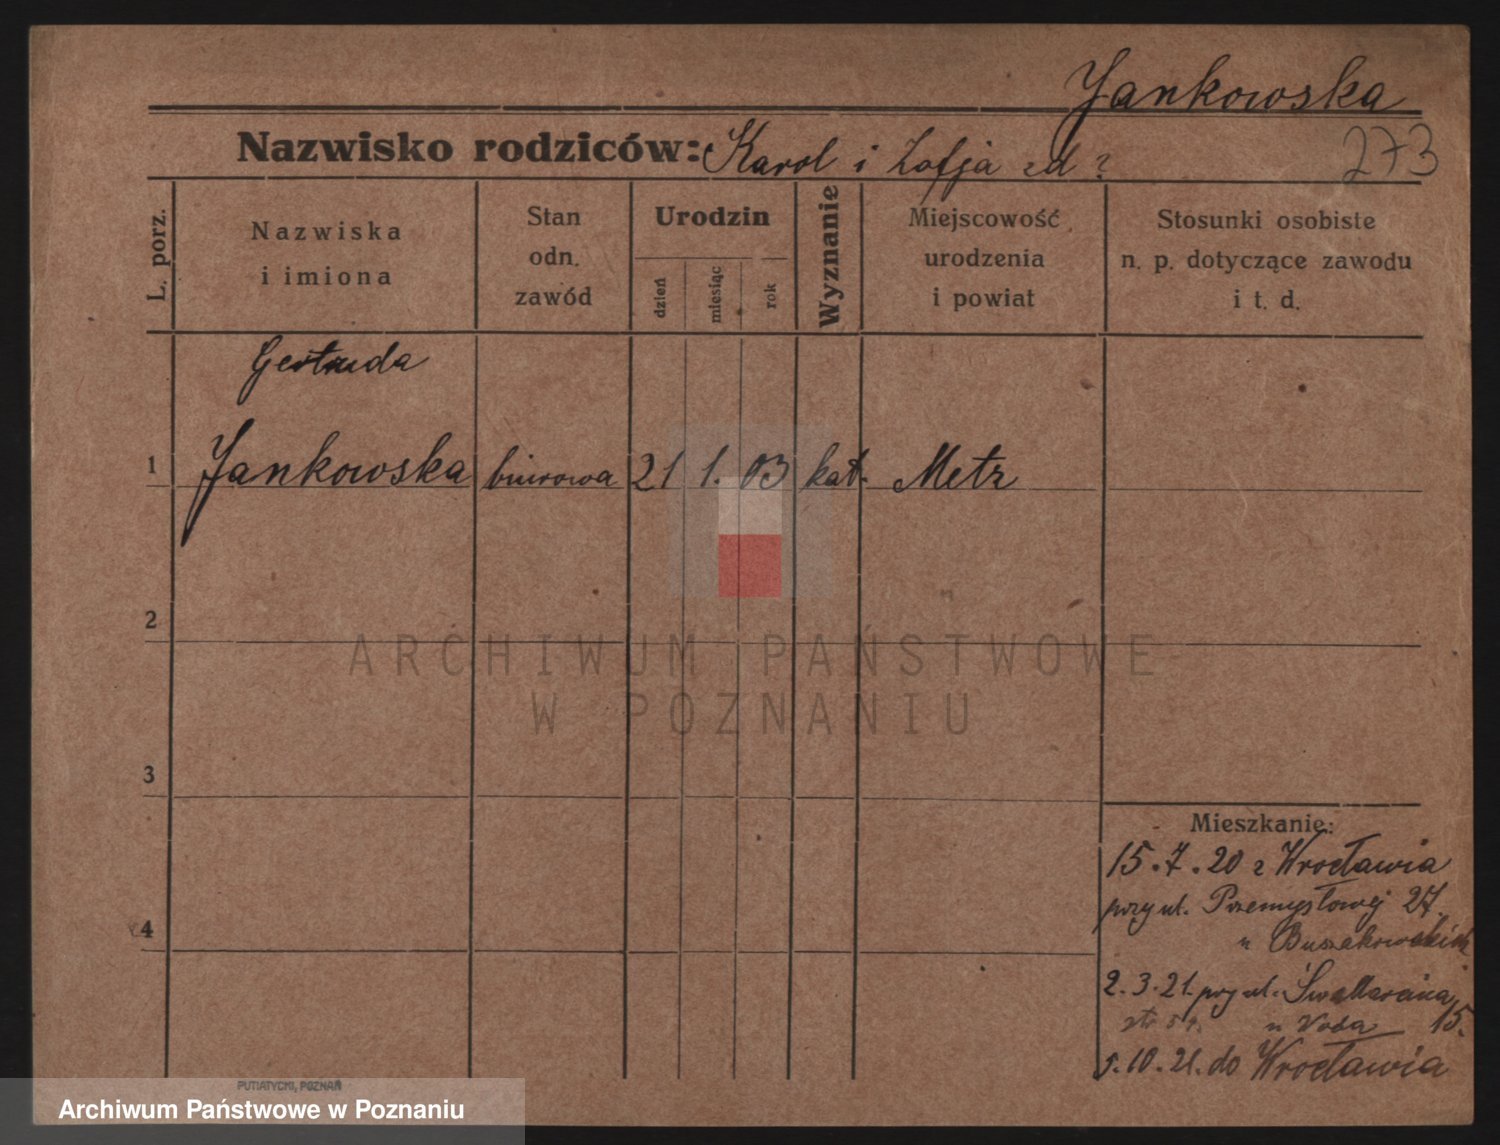 Jankowska
Nazwisko rodziców: Karol i Zofja zd ?
273
L. porz.
Nazwiska
i imiona
Stan
odn.
zawód
Urodzin
dzień
miesiąc
rok
Wyznanie
Miejscowość
urodzenia
i powiat
Stosunki osobiste
n. p. dotyczące zawodu
i t. d.
Gertruda
1 Jankowska biurowa 21 1. 03 kat. Metz
2
3
4
ARCHIWUM PAŃSTWOWE
W POZNANIU
Mieszkanie:
15.7.20 z Wrocławia
przy ul. Przemysłowej 27.
u
2.3.21. przy ul. Św. Marcina
u Voda 15.
5.10.21. do Wrocławia
PUTIATYCKI, POZNAŃ
Archiwum Państwowe w Poznaniu